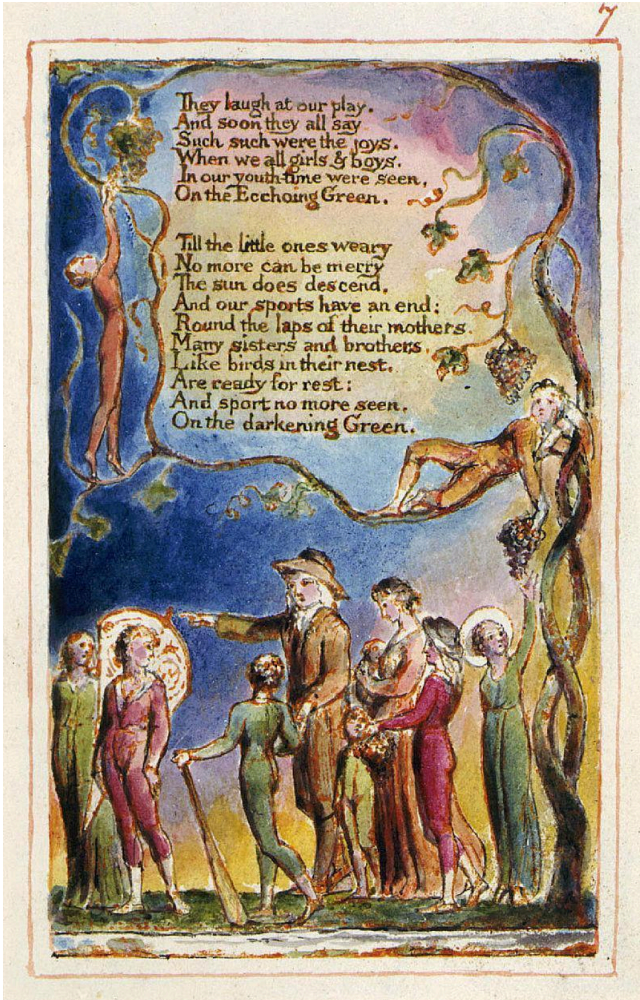 7
They laugh at our play.
And soon they all say
Such such were the joys.
When we all girls & boys.
In our youth-time were seen,
On the Ecchoing Green.
Till the little ones weary
No more can be merry
The sun does descend,
And our sports have an end:
Round the laps of their mothers.
Many sisters and brothers,
Like birds in their nest,
Are ready for rest:
And sport no more seen,
On the darkening Green.